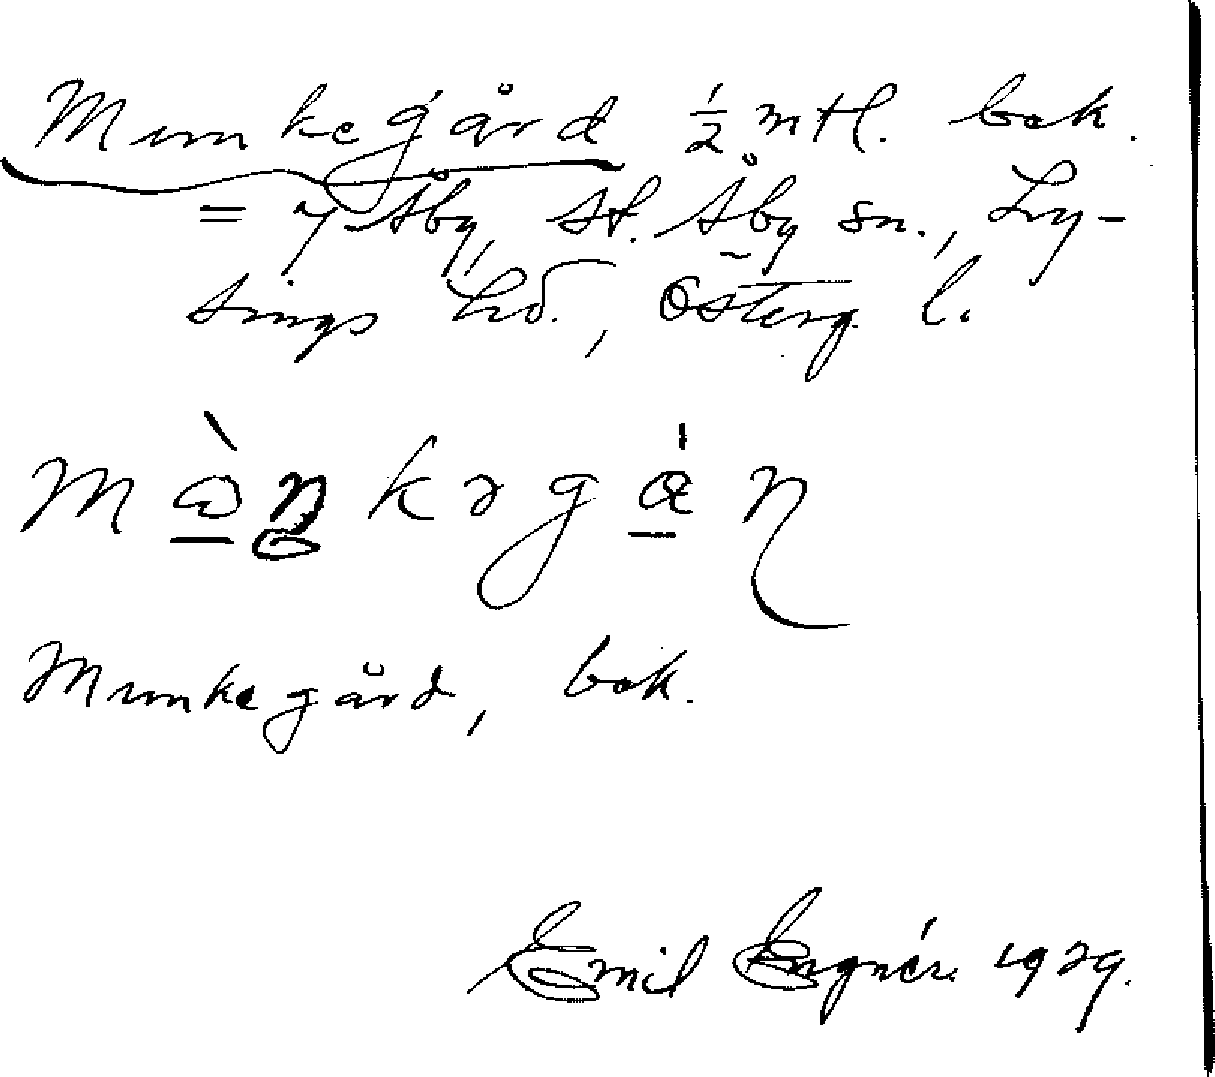 Munkegård ½ mtl. bok.
= 7 Åby, st. Åby sn., Ly-
sings hd., Österg. l.
Munkegård, bok.
Emil Engnér. 1929.